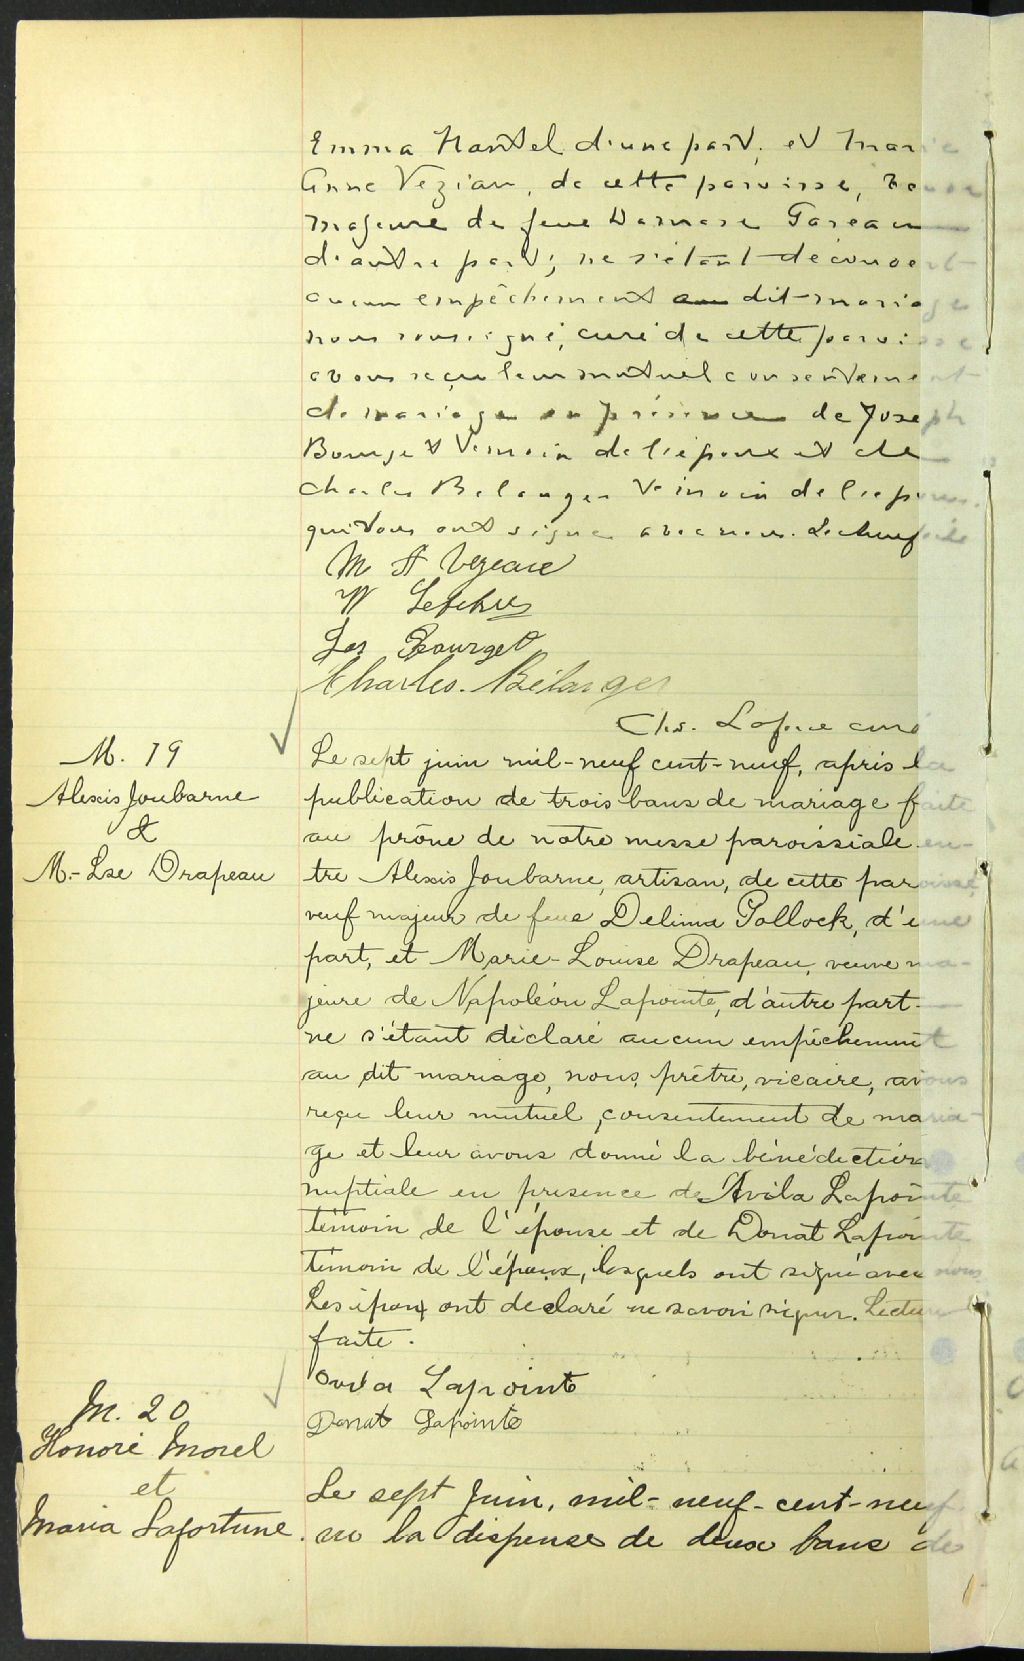 Emma Hantel d'une part, et Marie
Anne Vezian, de cette paroisse, veuve
majeure de feue Damase Gareau
d'autre part; ne s'étant découvert
aucun empêchement au dit mariage
nous soussigné, curé de cette paroisse
avons reçu leur mutuel consentement
de mariage en présence de Joseph
Bourget temoin de l'époux et de
Charles Belanger temoin de l'epouse.
qui tous ont signé avec nous. Lecture faite
M A Vezeau
W Lefebvre
Jos Bourget
Charles. Bélanger
Chs. curé
M. 19
Alexis Joubarne
&
M.-Lse Drapeau
Le sept juin mil-neuf cent-neuf, après la
publication de trois bans de mariage faite
au prône de notre messe paroissiale en-
tre Alexis Joubarne, artisan, de cette paroisse,
veuf majeur de feue Delima Pollock, d'une
part, et Marie-Louise Drapeau, veuve ma-
jeure de Napoléon Lapointe, d'autre part
ne s'étant déclaré aucun empêchement
au dit mariage, nous, prêtre, vicaire, avons
reçu leur mutuel consentement de maria-
ge et leur avons donné la bénédiction
nuptiale en présence de Avila Lapointe
témoin de l'épouse et de Donat Lapointe
témoin de l'époux, lesquels ont signé avec nous
Les époux ont declaré ne savoir signer. Lecture
faite.
Ovila Lapointe
Donat Lapointe
M. 20
Honoré Morel
et
Maria Lafortune.
Le sept Juin, mil-neuf-cent-neuf
vu la dispense de deux bans de